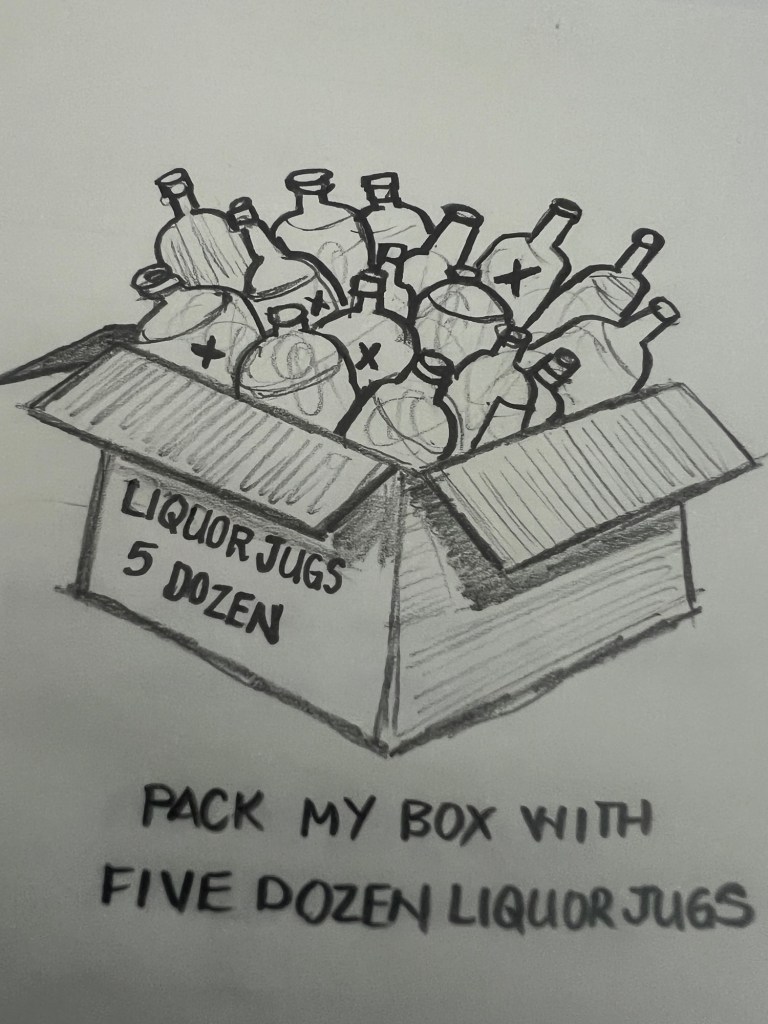 LIQUOR JUGS
5 DOZEN
PACK MY BOX WITH
FIVE DOZEN LIQUOR JUGS